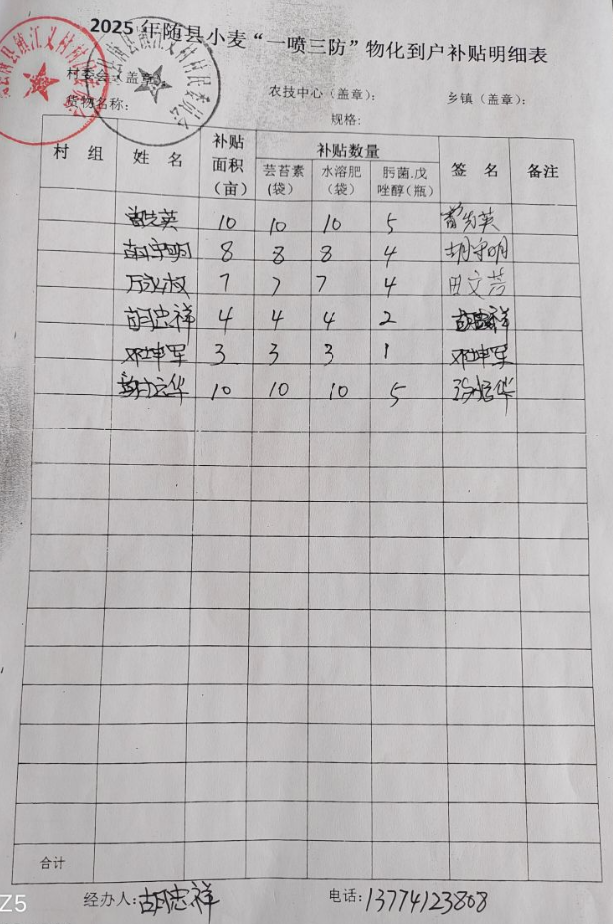 2025 年随县小麦“一喷三防”物化到户补贴明细表
村委会（盖章）： 农技中心（盖章）： 乡镇（盖章）：
货物名称： 规格：
村 组 姓 名 补贴面积（亩） 补贴数量 签 名 备注
芸苔素（袋） 水溶肥（袋） 肟菌.戊唑醇（瓶）
曾先英 10 10 10 5 曾先英
胡守明 8 8 8 4 胡守明
7 7 7 4 田文芳
胡忠祥 4 4 4 2 胡忠祥
邓坤军 3 3 3 1 邓坤军
10 10 10 5
合计
经办人：胡忠祥 电话：13774123808
Z5